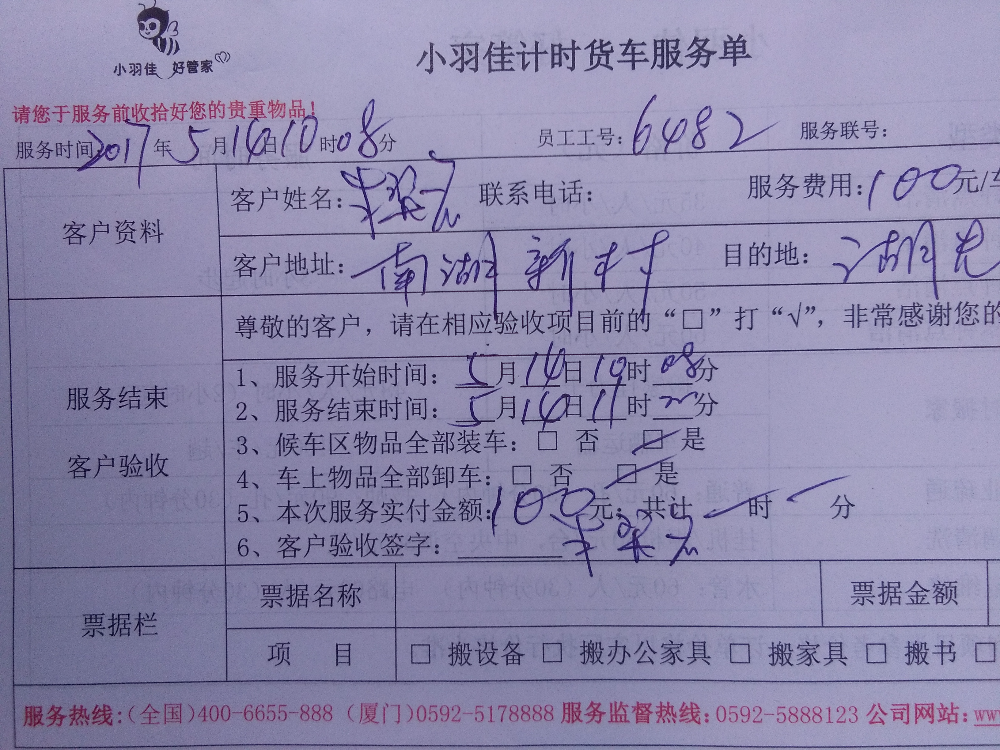 小羽佳 好管家
小羽佳计时货车服务单
请您于服务前收拾好您的贵重物品!
服务时间 2017 年 5 月 14 日 10 时 08 分 员工工号: 6482 服务联号:
客户资料
客户姓名: 联系电话: 服务费用: 100 元/车
客户地址: 南湖新村 目的地: 湖光
尊敬的客户，请在相应验收项目前的“□”打“√”，非常感谢您的
服务结束
客户验收
1、服务开始时间: 5 月 14 日 10 时 08 分
2、服务结束时间: 5 月 14 日 11 时 分
3、候车区物品全部装车: □ 否 ☑ 是
4、车上物品全部卸车: □ 否 ☑ 是
5、本次服务实付金额: 100 元; 共计 时 分
6、客户验收签字:
票据栏
票据名称 票据金额
项 目 □ 搬设备 □ 搬办公家具 □ 搬家具 □ 搬书 □
服务热线:(全国)400-6655-888 (厦门)0592-5178888 服务监督热线:0592-5888123 公司网站:www